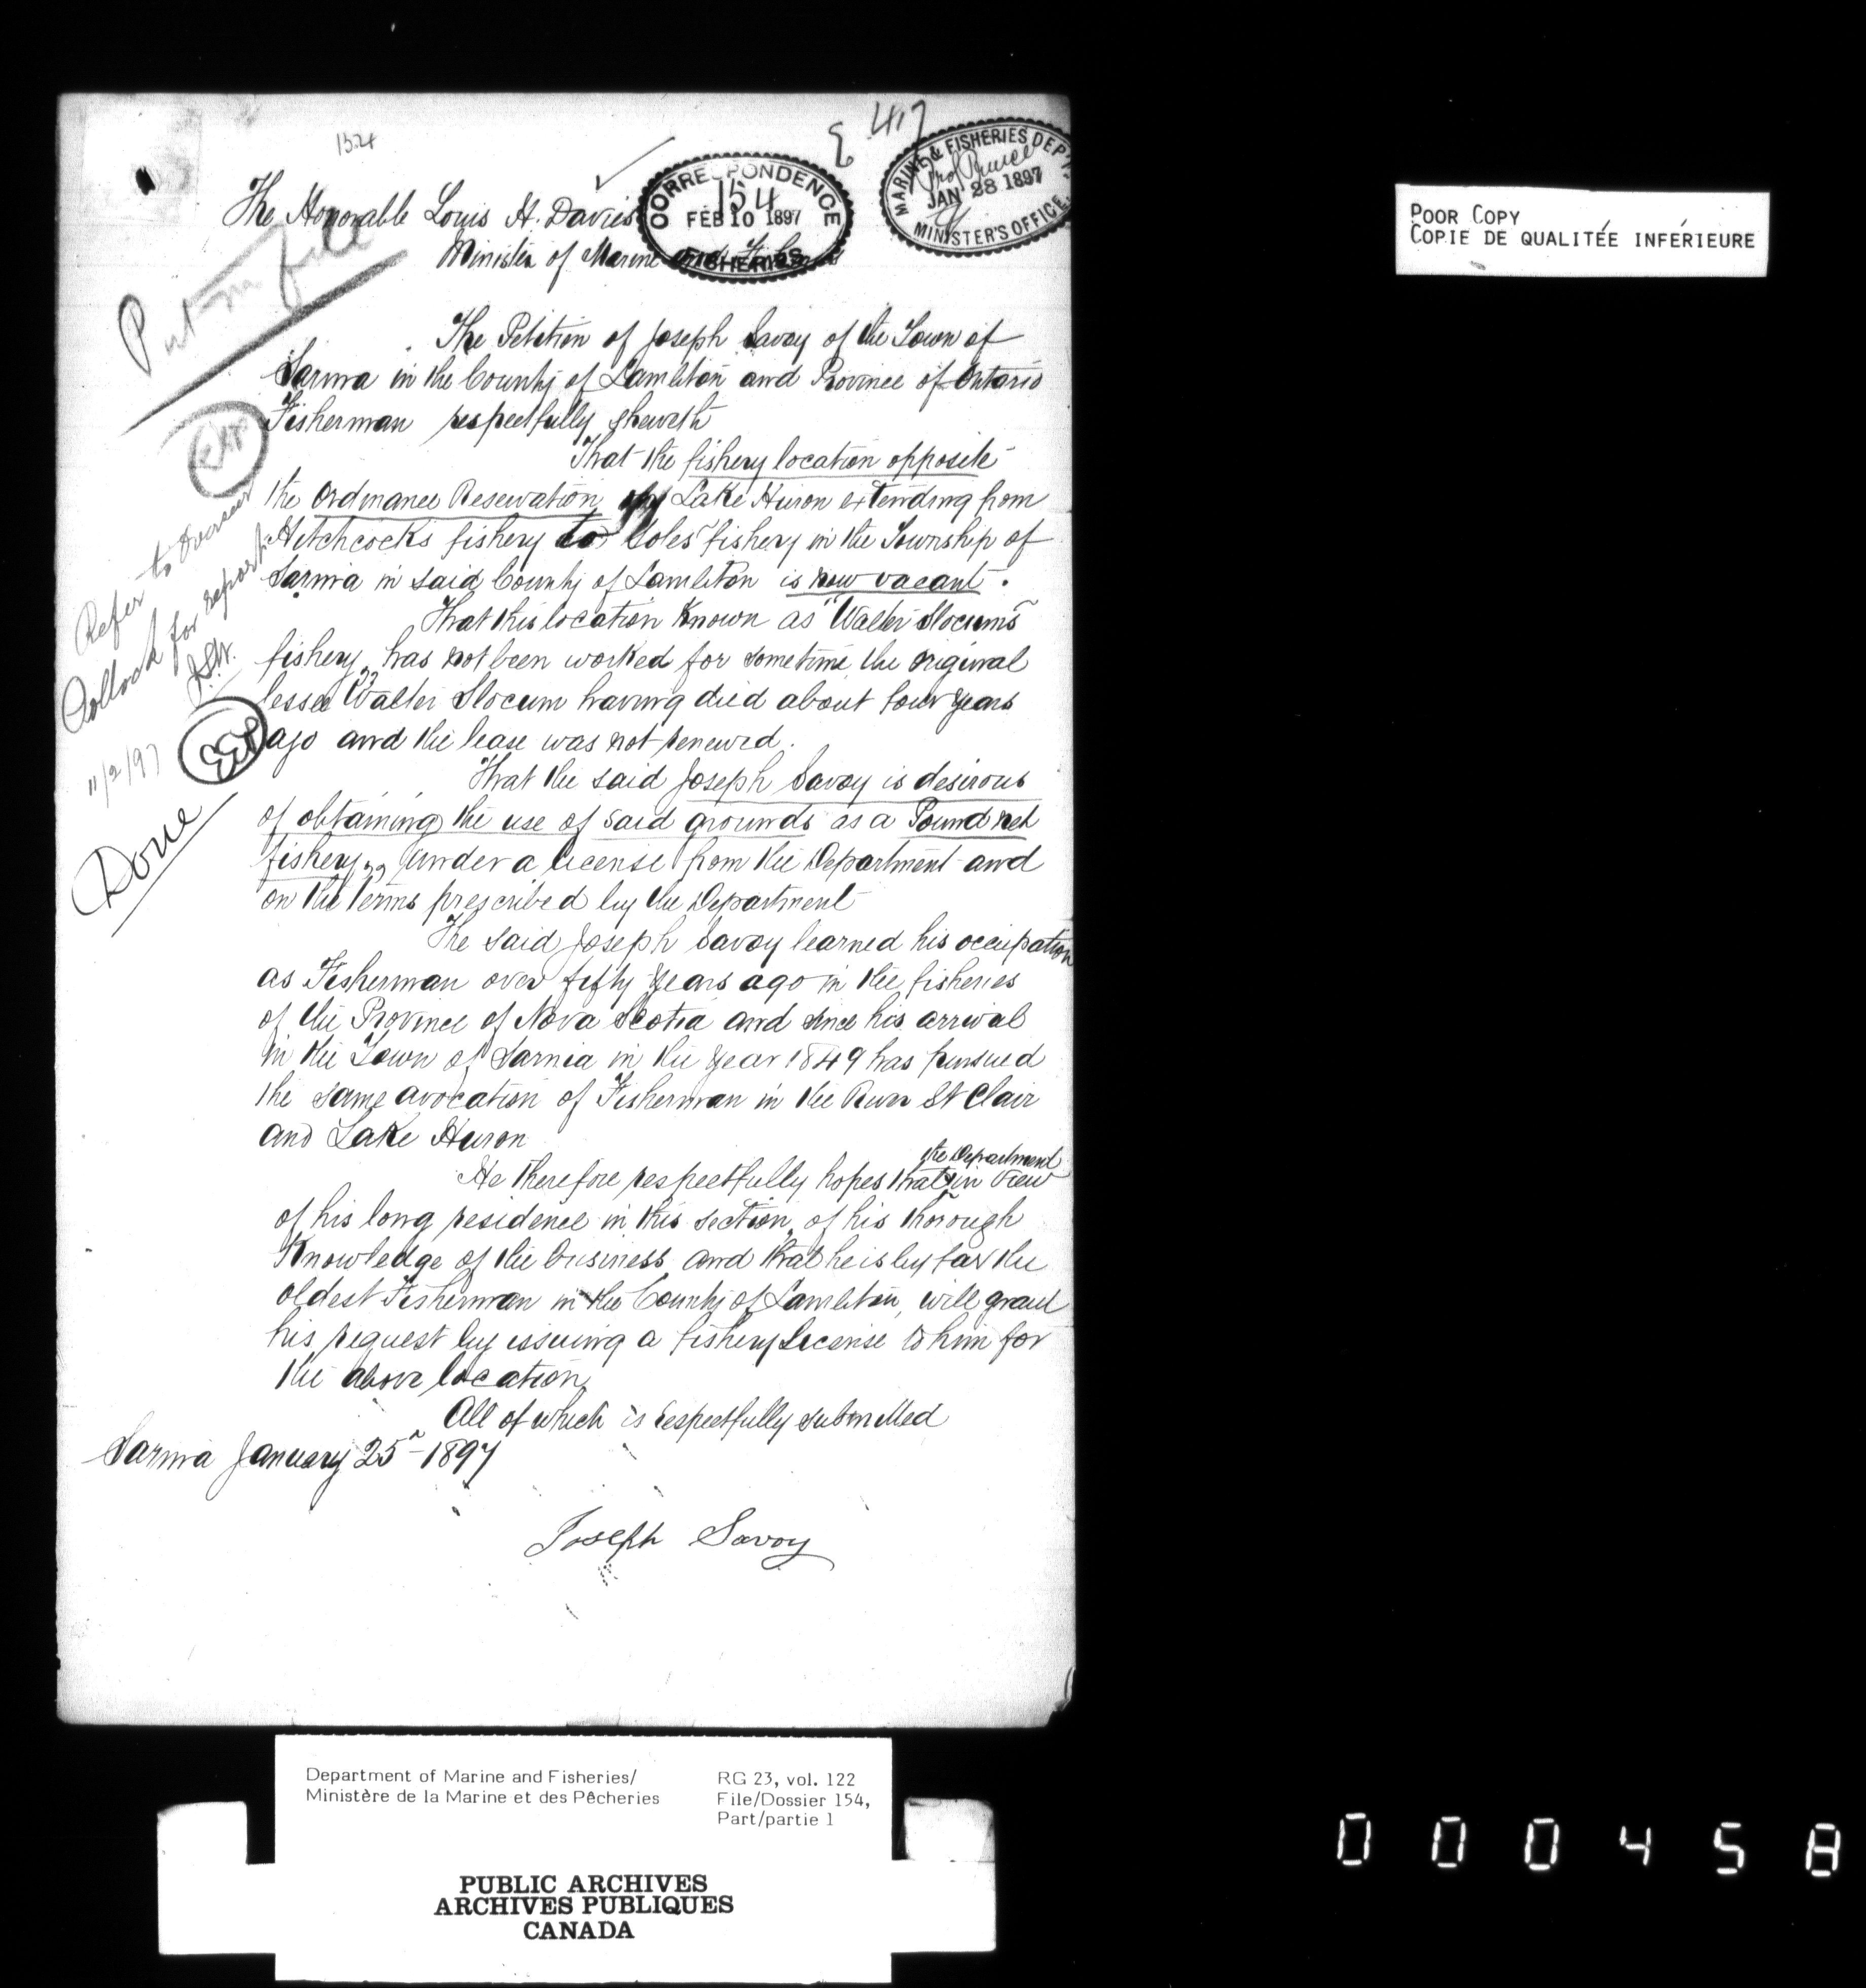 1524
E 417
The Honorable Louis H. Davies
Minister of Marine and Fisheries
CORRESPONDENCE
154
FEB 10 1897
FISHERIES
MARINE & FISHERIES DEPT.
Prof Prince
JAN 28 1897
MINISTER'S OFFICE
Put on file
The Petition of Joseph Savoy of the Town of
Sarnia in the County of Lambton and Province of Ontario
Fisherman respectfully sheweth
That the fishery location opposite
the Ordinance Reservation Lake Huron extending from
Hitchcocks fishery to Coles fishery in the Township of
Sarnia in said County of Lambton is now vacant.
That this location Known as "Walter Slocums
fishery" has not been worked for sometime, the original
lessee Walter Slocum having died about four years
ago and the lease was not renewed.
That the said Joseph Savoy is desirous
of obtaining the use of said grounds as a Pound net
fishery" under a license from the Department and
on the terms prescribed by the Department
The said Joseph Savoy learned his occupation
as Fisherman over fifty years ago in the fisheries
of the Province of Nova Scotia and since his arrival
in the Town of Sarnia in the year 1849 has pursued
the same avocation of Fisherman in the River St Clair
and Lake Huron
the Department
He therefore respectfully hopes that in view
of his long residence in this section, of his thorough
Knowledge of the business and that he is by far the
oldest Fisherman in the County of Lambton, will grant
his request by issuing a fishery License to him for
the above location,
All of which is respectfully submitted
Sarnia January 25th 1897
Joseph Savoy
Refer to Overseer
Pollock for report.
11/2/97
Done
POOR COPY
COPIE DE QUALITÉE INFÉRIEURE
Department of Marine and Fisheries/
Ministère de la Marine et des Pêcheries
RG 23, vol. 122
File/Dossier 154,
Part/partie 1
PUBLIC ARCHIVES
ARCHIVES PUBLIQUES
CANADA
000458